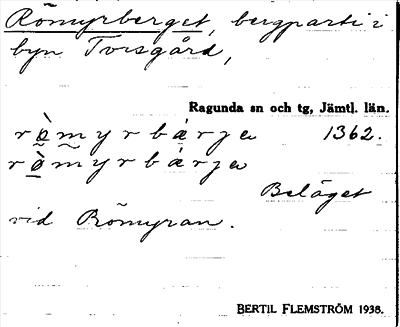 Römyrberget, bergparti i
byn Torsgård,
Ragunda sn och tg, Jämtl. län.
rò̰m̰yrbárjɐ 1362.
rò̰m̰yrbárjɐ
Beläget
vid Römyran.
BERTIL FLEMSTRÖM 1938.